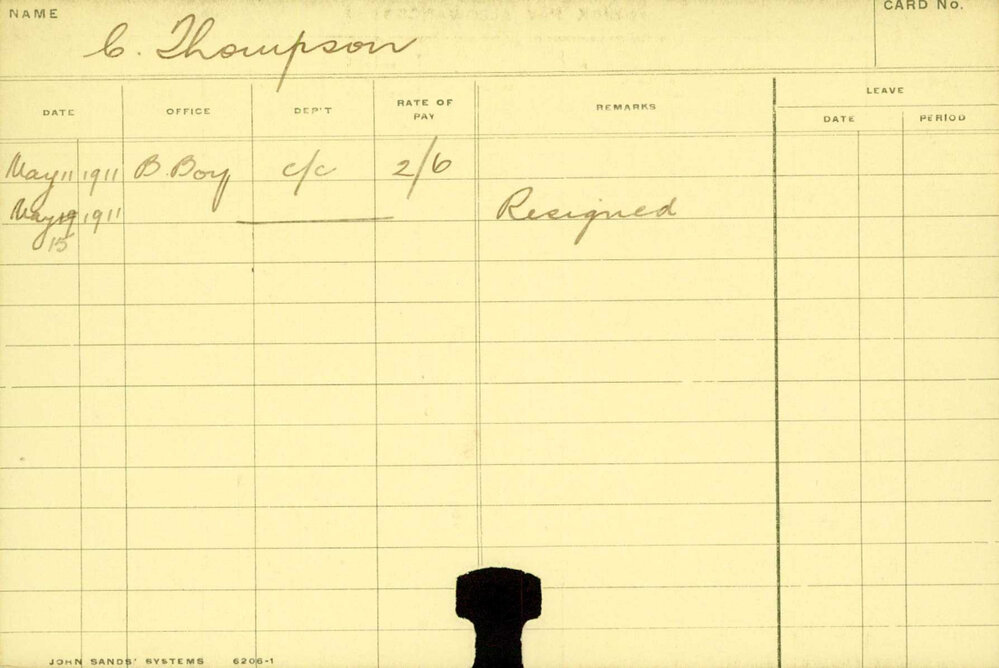 NAME
C. Thompson
CARD No.
DATE OFFICE DEP'T RATE OF PAY REMARKS LEAVE
DATE PERIOD
May 11 1911 B. Boy c/c 2/6
May 19 1911 Resigned
15
JOHN SANDS' SYSTEMS 6206-1